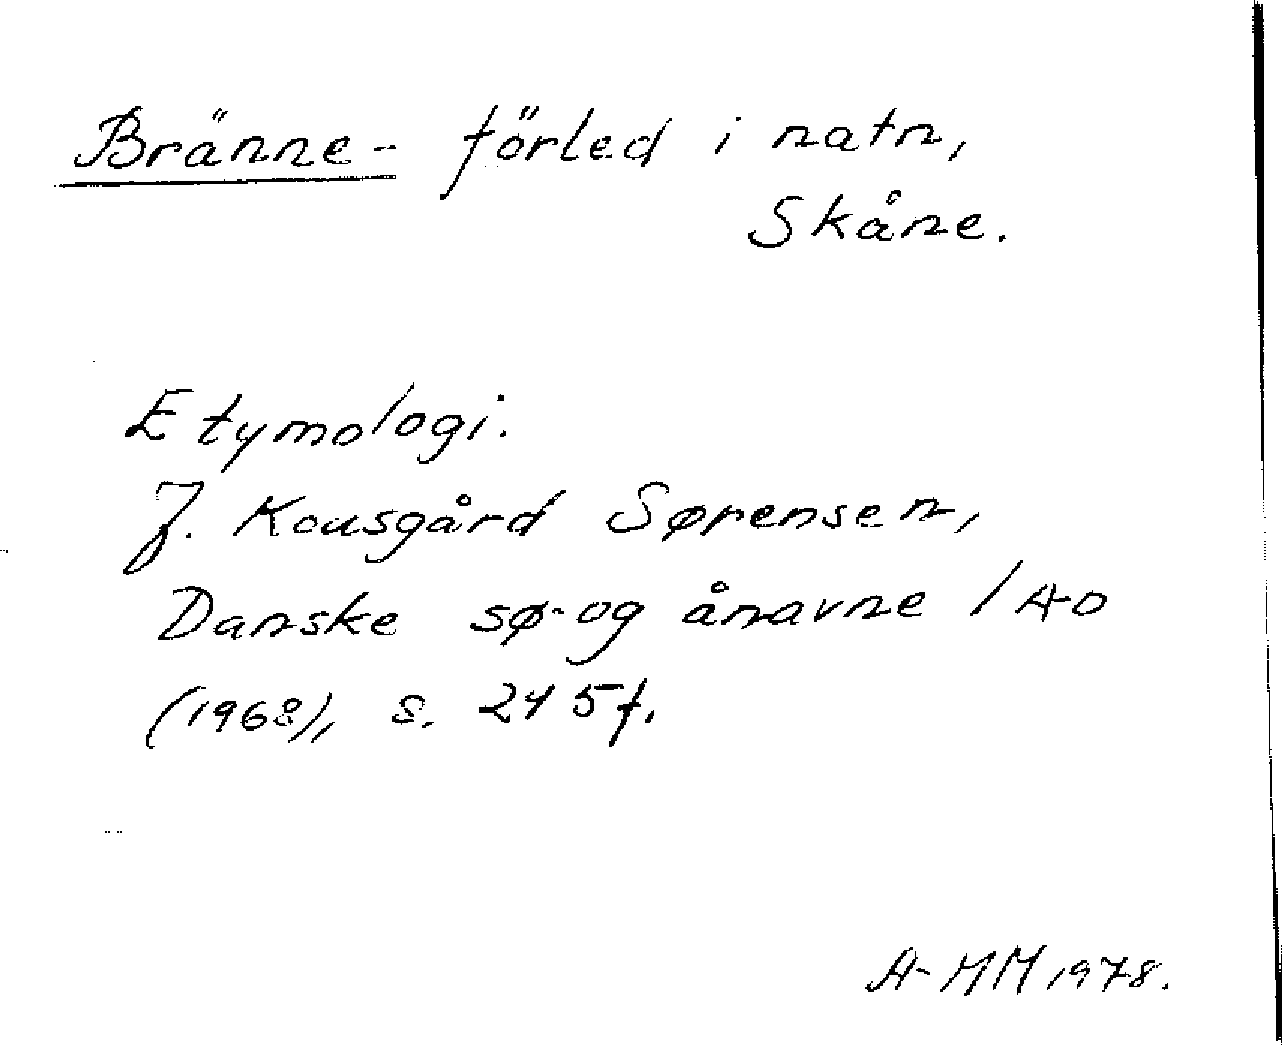 Bränne- förled i natn,
Skåne.
Etymologi.
J. Kousgård Sørensen,
Danske sø- og ånavne 1 A-D
(1968), s. 245f.
A-MM 1978.